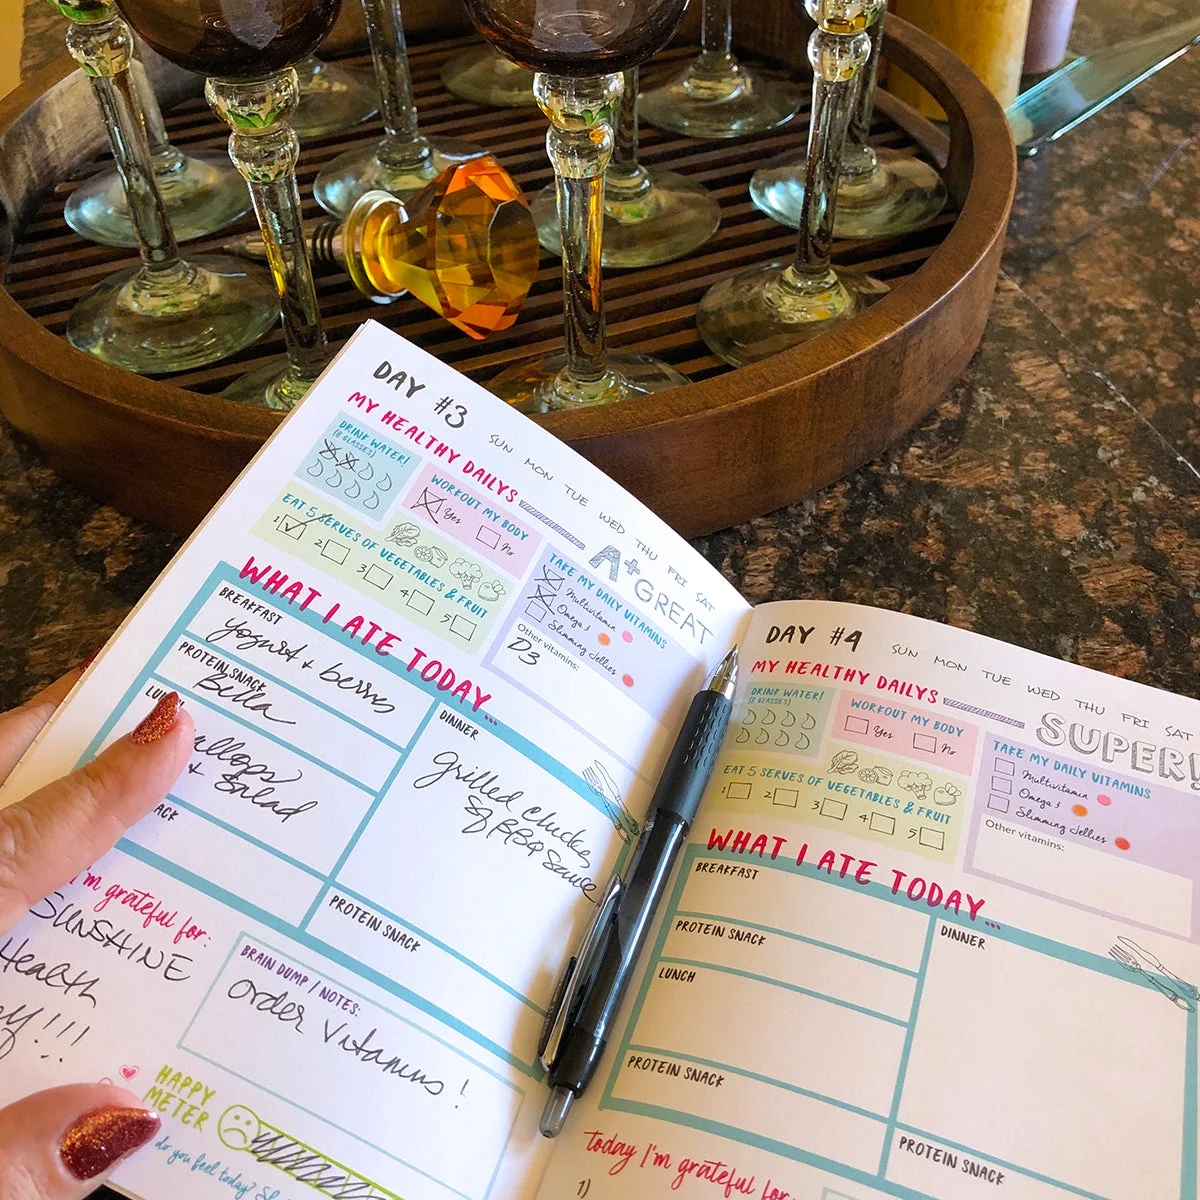 DAY #3
SUN MON TUE WED THU FRI SAT
MY HEALTHY DAILYS
DRINK WATER!
(8 GLASSES)
WORKOUT MY BODY
Yes No
A+ GREAT
EAT 5 SERVES OF VEGETABLES & FRUIT
1 2 3 4 5
TAKE MY DAILY VITAMINS
Multivitamin
Omega 3
Slimming Jellies
Other vitamins:
D3
WHAT I ATE TODAY...
BREAKFAST
Yogurt + berries
PROTEIN SNACK
Bella
& Salad
DINNER
Grilled Chicken
BBQ Sauce
PROTEIN SNACK
I'm grateful for:
SUNSHINE
Health
BRAIN DUMP / NOTES:
Order Vitamins!
HAPPY
METER
do you feel today?
DAY #4
SUN MON TUE WED THU FRI SAT
MY HEALTHY DAILYS
DRINK WATER!
(8 GLASSES)
WORKOUT MY BODY
Yes No
SUPER!
EAT 5 SERVES OF VEGETABLES & FRUIT
1 2 3 4 5
TAKE MY DAILY VITAMINS
Multivitamin
Omega 3
Slimming Jellies
Other vitamins:
WHAT I ATE TODAY...
BREAKFAST
PROTEIN SNACK
LUNCH
PROTEIN SNACK
DINNER
PROTEIN SNACK
today I'm grateful for:
1)